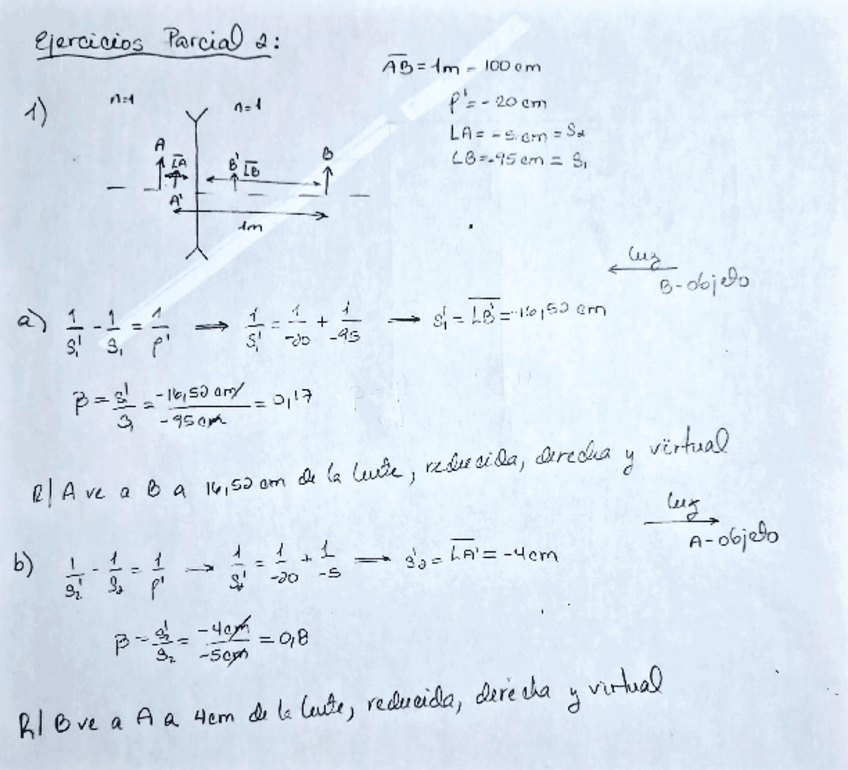 Ejercicios Parcial 2:
AB = 1m = 100 cm
1)
n=1
n=1
f' = -20 cm
LA = -5 cm = S₂
LB = -95 cm = S₁
A
LA
B'
LB
B
A'
1m
luz
B-objeto
a) 1/S₁' - 1/S₁ = 1/f' ⟹ 1/S₁' = 1/-20 + 1/-95 ⟶ S₁' = LB' = -16,52 cm
β = S₁'/S₁ = -16,52 cm/-95 cm = 0,17
R/ A ve a B a 16,52 cm de la lente, reducida, derecha y virtual
luz
A-objeto
b) 1/S₂' - 1/S₂ = 1/f' ⟶ 1/S₂' = 1/-20 + 1/-5 ⟹ S₂' = LA' = -4cm
β = S₂'/S₂ = -4cm/-5cm = 0,8
R/ B ve a A a 4cm de la lente, reducida, derecha y virtual